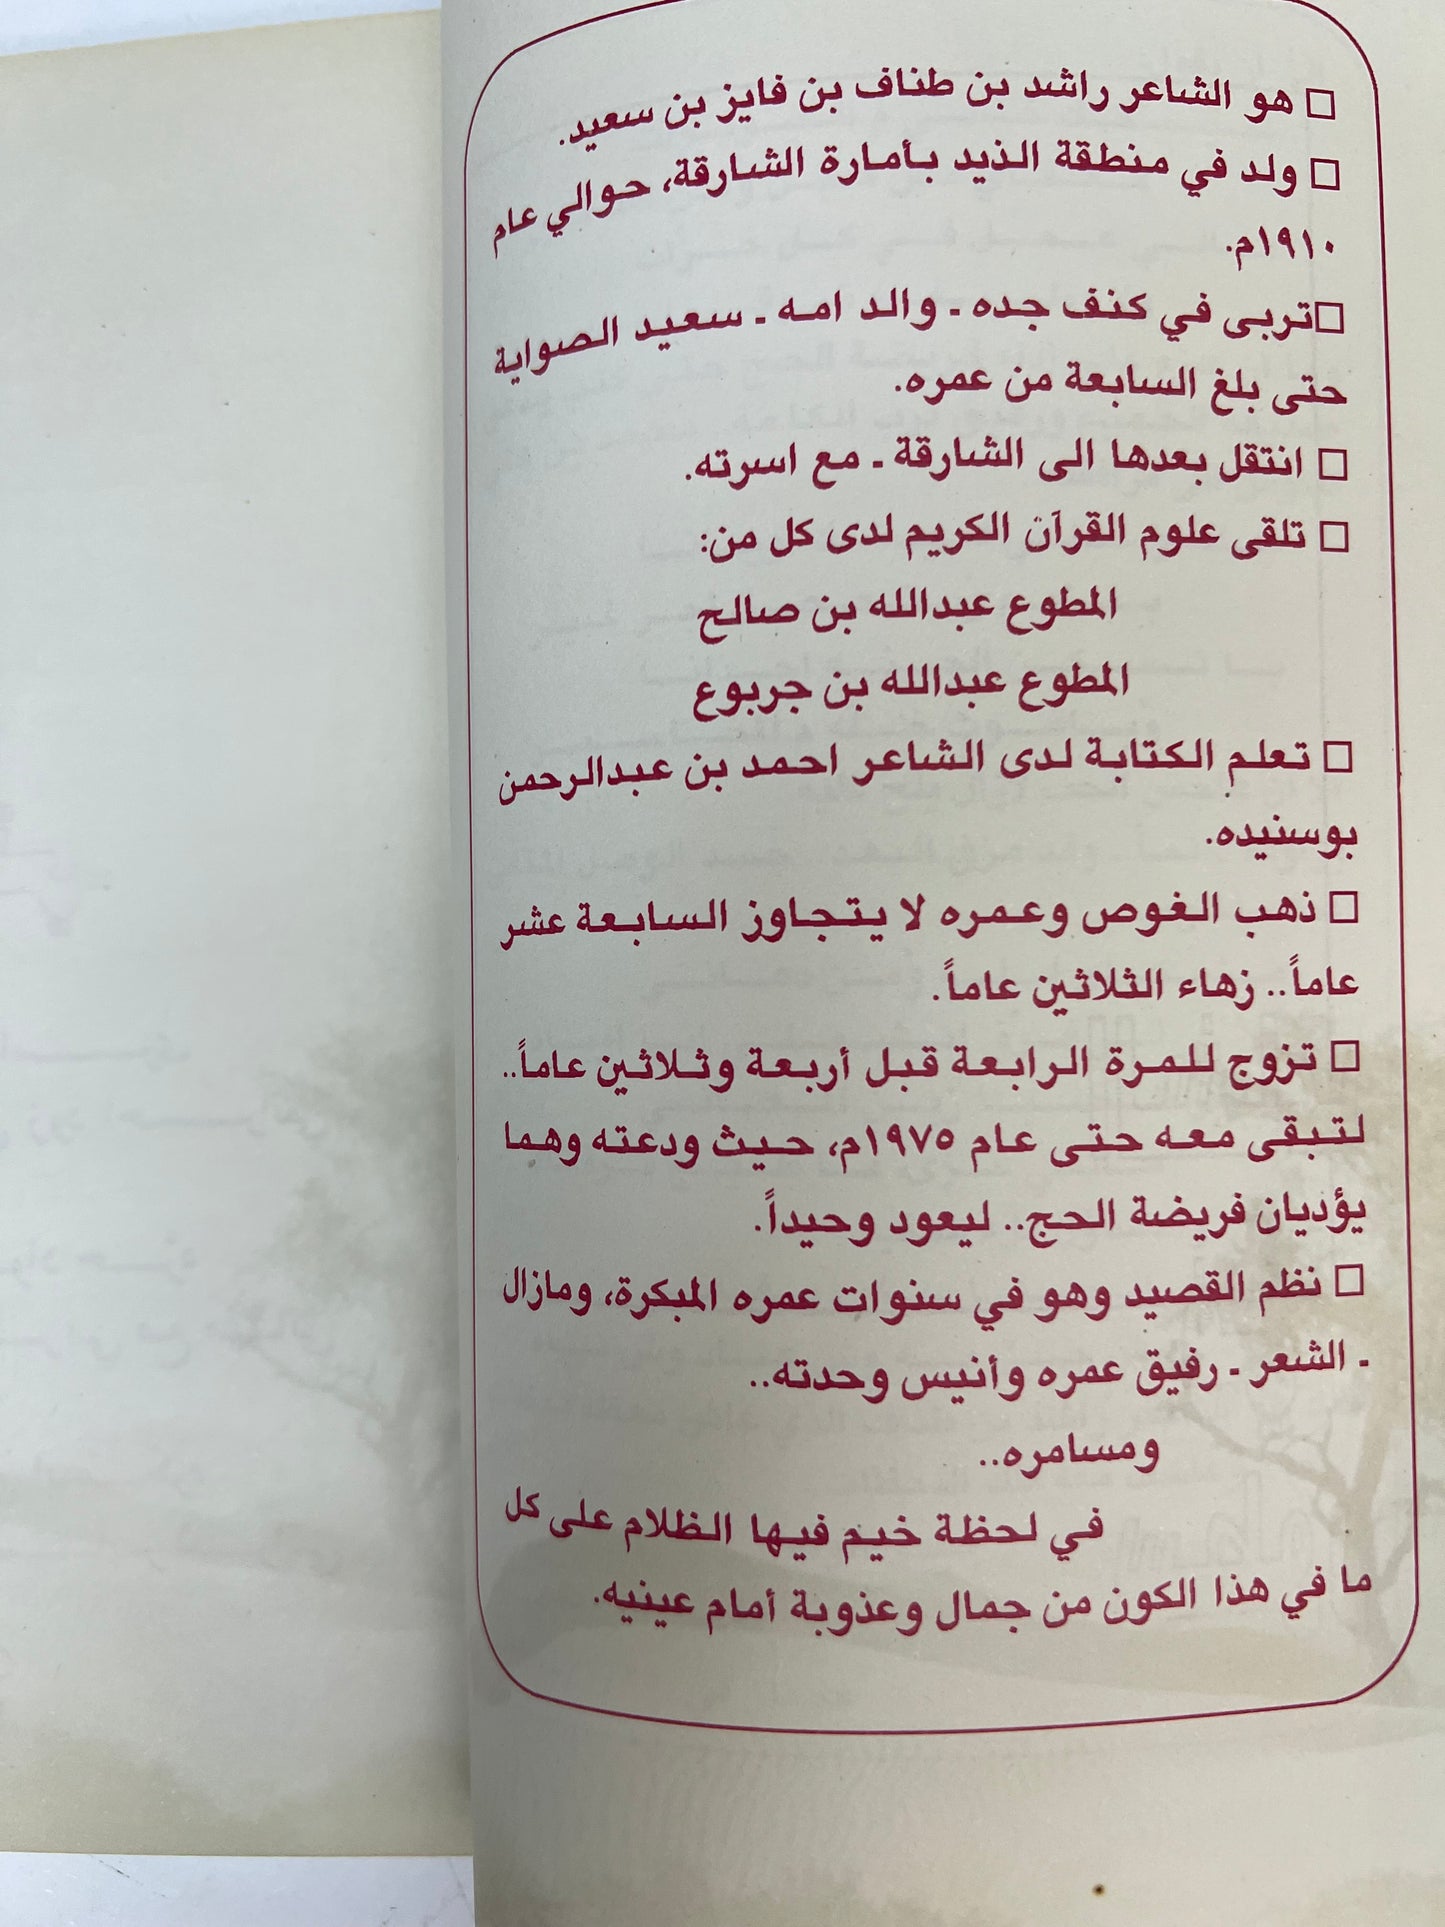 □ هو الشاعر راشد بن طناف بن فايز بن سعيد.
□ ولد في منطقة الذيد بأمارة الشارقة، حوالي عام
١٩١٠م.
□تربى في كنف جده ـ والد امه ـ سعيد الصواية
حتى بلغ السابعة من عمره.
□ انتقل بعدها الى الشارقة ـ مع اسرته.
□ تلقى علوم القرآن الكريم لدى كل من:
المطوع عبدالله بن صالح
المطوع عبدالله بن جربوع
□ تعلم الكتابة لدى الشاعر احمد بن عبدالرحمن
بوسنيده.
□ ذهب الغوص وعمره لا يتجاوز السابعة عشر
عاماً.. زهاء الثلاثين عاماً.
□ تزوج للمرة الرابعة قبل أربعة وثلاثين عاماً..
لتبقى معه حتى عام ١٩٧٥م، حيث ودعته وهما
يؤديان فريضة الحج.. ليعود وحيداً.
□ نظم القصيد وهو في سنوات عمره المبكرة، ومازال
ـ الشعر ـ رفيق عمره وأنيس وحدته..
ومسامره..
في لحظة خيم فيها الظلام على كل
ما في هذا الكون من جمال وعذوبة أمام عينيه.